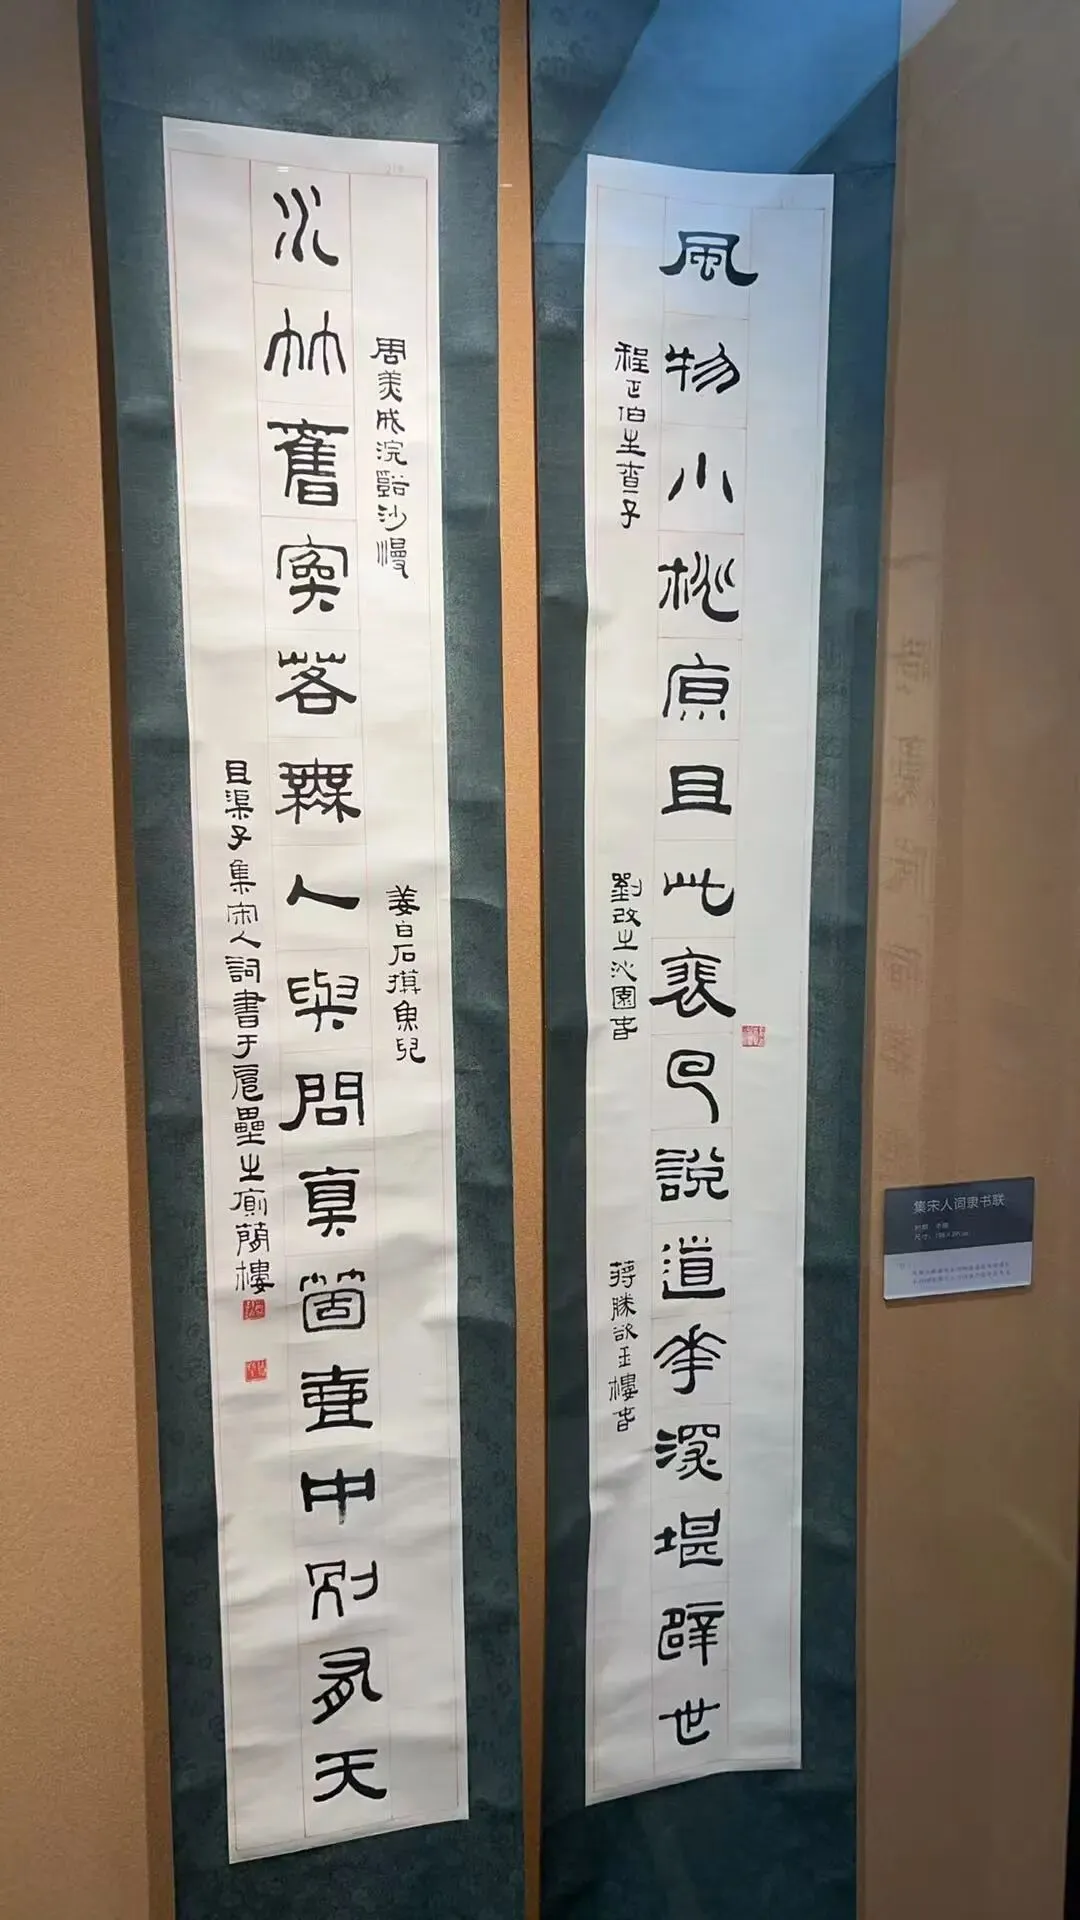 風物小桃原且此裵回說道華深堪辟世
程正伯生查子
劉改之沁園春
蔣勝欲玉樓春
水竹舊寏落無人與問真箇壺中別有天
周美成浣谿沙慢
姜白石摸魚兒
且渠子集宋人詞書于扈壘之廁簡樓
集宋人词隶书联